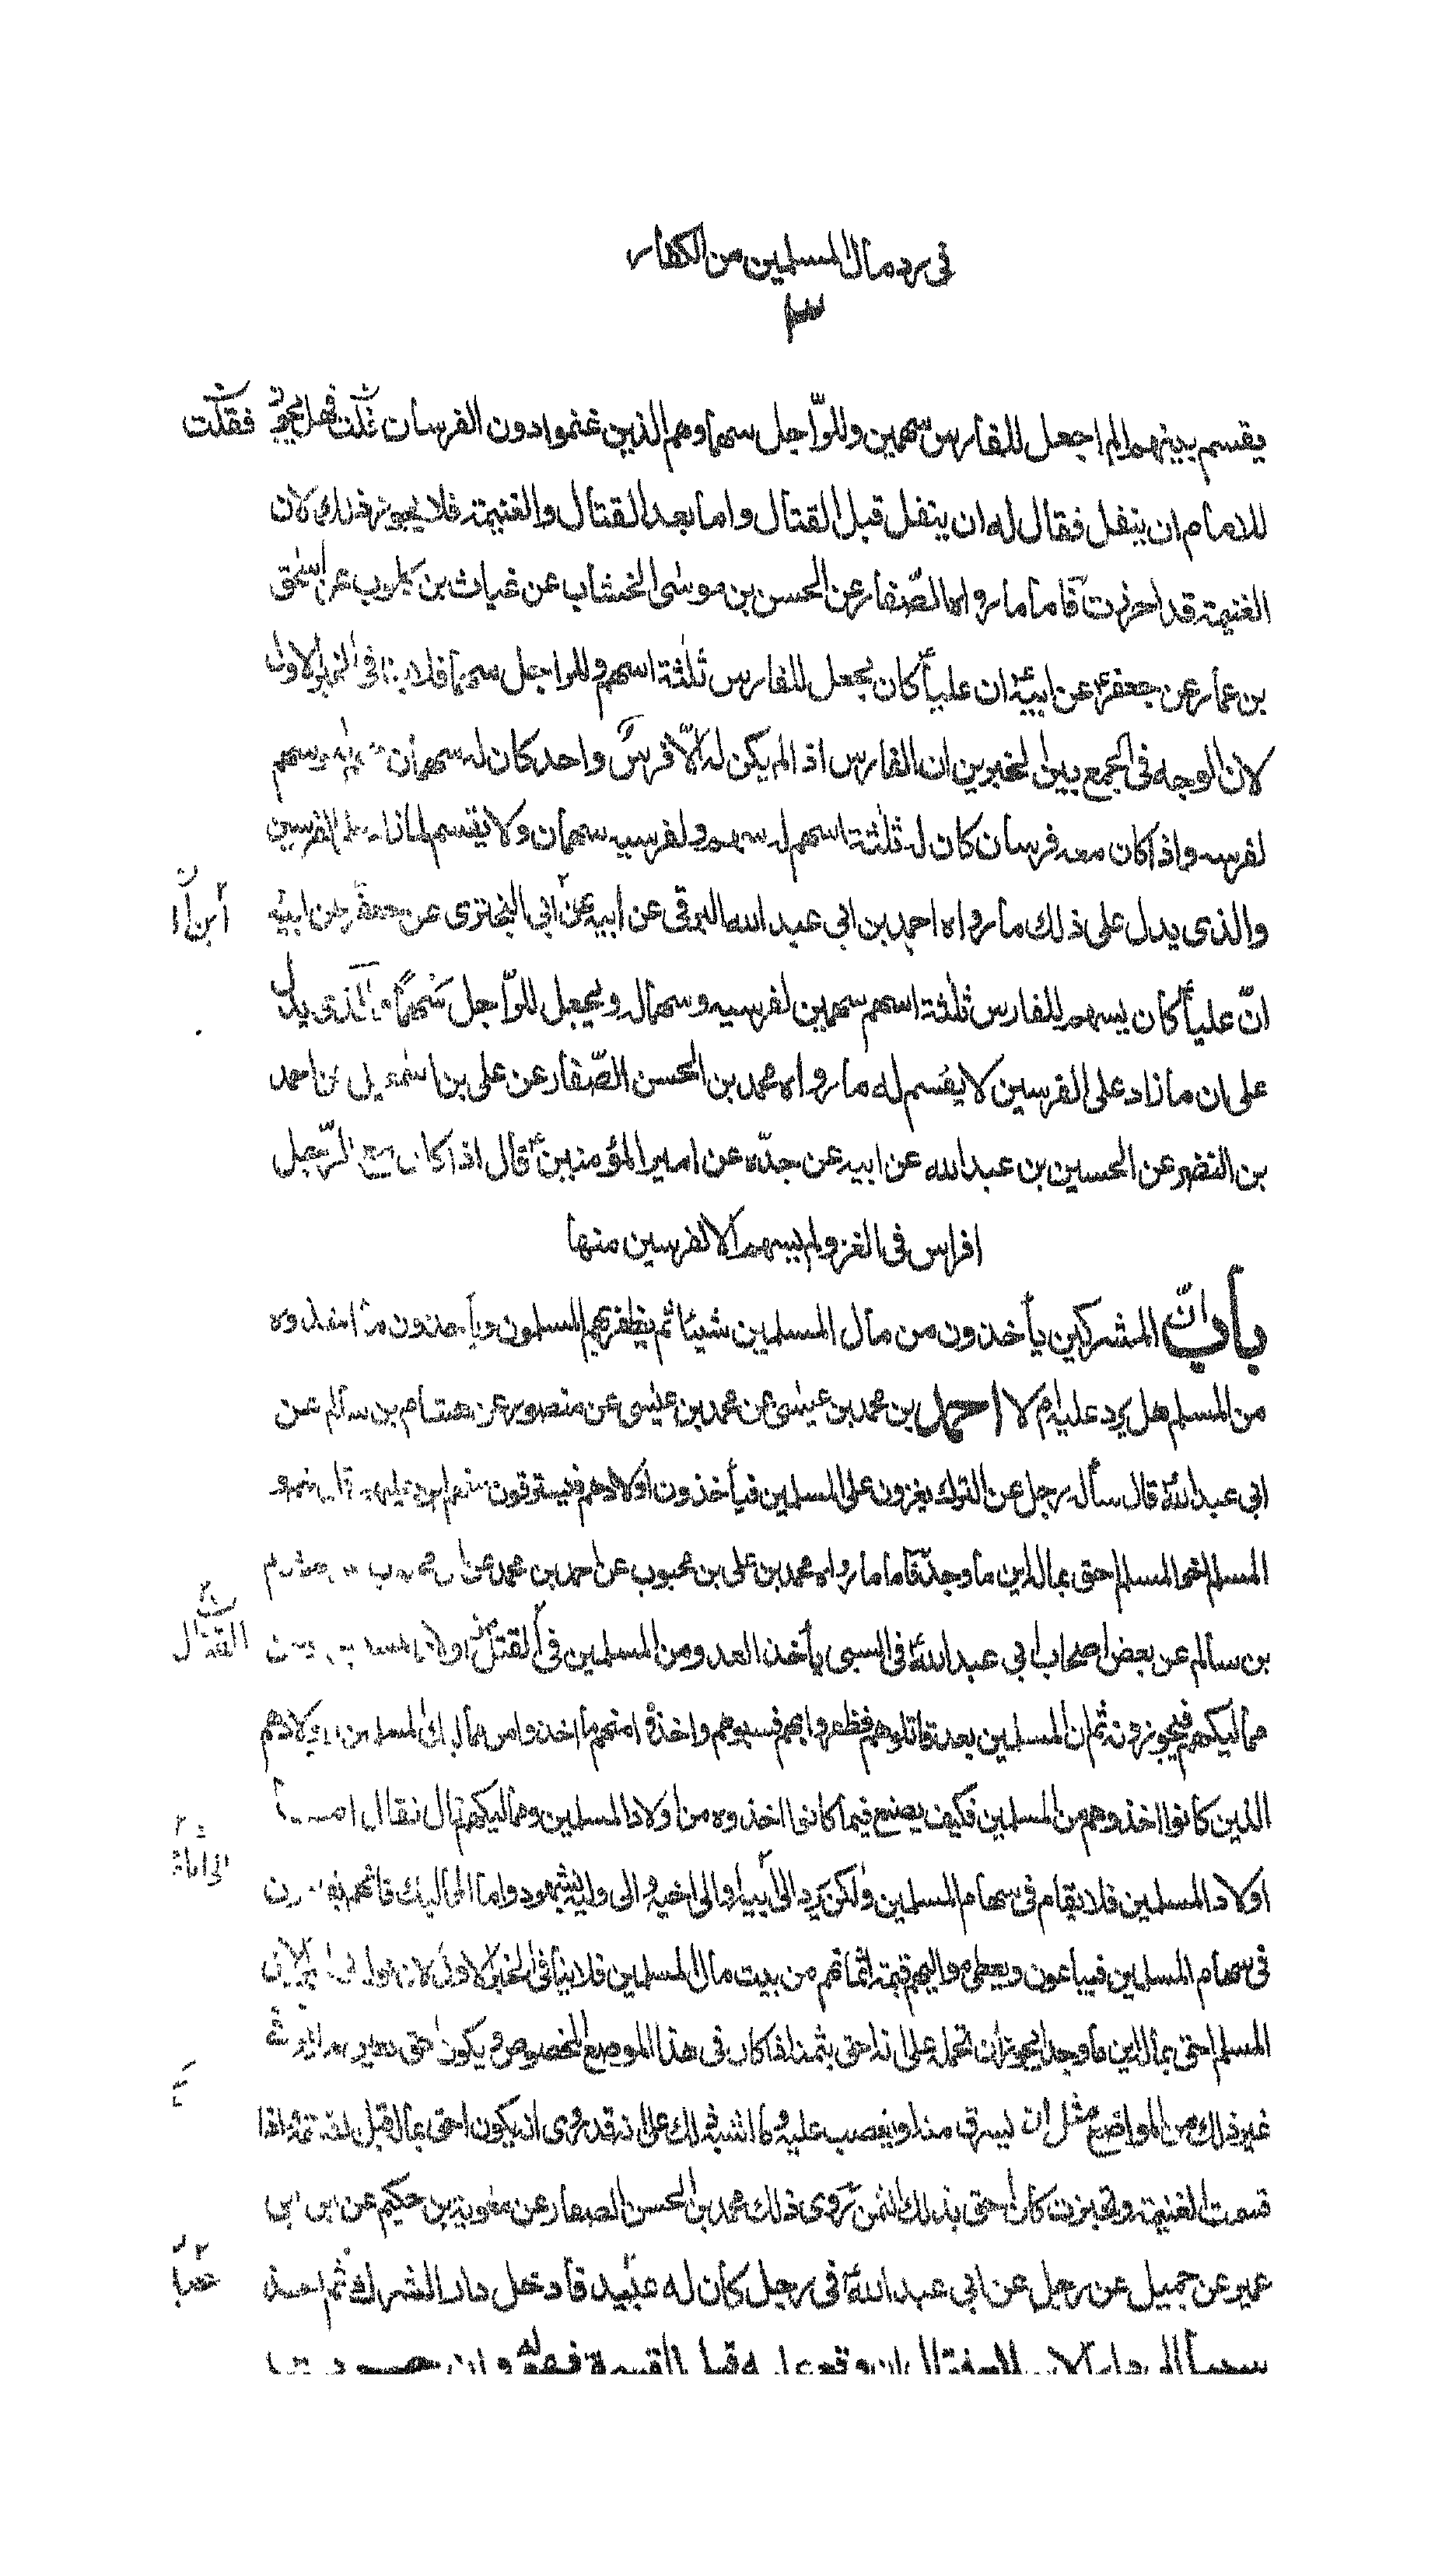 في رد مال المسلمين من الكفار
٣
يقسم بينهم المراجعل للفارس سهمين وللرّاجل سهما وهم الذين غنموا دون الفرسان قلت فهل يجوز فقلت
للامام ان ينفل فقال له ان ينفل قبل القتال واما بعد القتال والغنيمة فلا يجوز ذلك لان
الغنيمة قد احرزت فاما ما رواه الصّفار عن الحسن بن موسى الخشاب عن غياث بن كلوب عن اسحق
بن عمار عن جعفر ع عن ابيه ان علياً كان يجعل للفارس ثلثة اسهم وللراجل سهما فلا ينافي الخبر الاول
لان الوجه في الجمع بين الخبرين ان الفارس اذا لم يكن له الّا فرس واحد كان له سهمان له وسهم
لفرسه واذا كان معه فرسان كان له ثلثة اسهم له سهم ولفرسيه سهمان ولا يقسم لما زاد على الفرسين
والذي يدل على ذلك ما رواه احمد بن ابي عبد الله البرقي عن ابيه عن ابي البختري عن جعفر عن ابيه
ابن ا
انّ علياً كان يسهم للفارس ثلثة اسهم سهمين لفرسيه وسهما له ويجعل للرّاجل سهماً والذي يدل
على ان ما زاد على الفرسين لا يقسم له ما رواه محمد بن الحسن الصّفار عن على بن اسمعيل عن احمد
بن النضر عن الحسين بن عبد الله عن ابيه عن جدّه عن امير المؤمنين قال اذا كان مع الرّجل
افراس في الغزو لم يسهم الا لفرسين منها
باب انّ المشركين يأخذون من مال المسلمين شيئا ثم يظفر بهم المسلمون ويأخذون ما اخذوه
من المسلم هل يرد عليه ام لا احمد بن محمد بن عيسى عن محمد بن عيسى عن منصور عن هشام بن سالم عن
ابي عبد الله قال سأل رجل عن الترك يغزون على المسلمين فيأخذون اولادهم فيسترقون منهم ايرد عليهم قال نعم و
المسلم اخو المسلم احق بماله اين ما وجده فاما ما رواه محمد بن على بن محبوب عن احمد بن محمد عن محبوب هشام
بن سالم عن بعض اصحاب ابي عبد الله في السبى يأخذ العدو من المسلمين في القتل اولاد المسلمين
القتال
مماليكهم فيحوزونه ثم ان المسلمين بعد قاتلوهم فظفروا بهم فسبوهم واخذوا منهم ما اخذوا من مماليك المسلمين واولادهم
الذين كانوا اخذوهم من المسلمين فكيف يصنع فيما كانوا اخذوه من اولاد المسلمين ومماليكهم قال فقال اما
اولاد المسلمين فلا يقام في سهام المسلمين ولكن يرد الى ابيه والى اخيه والى وليه بشهود واما المماليك فانهم يقامون
في سهام المسلمين فيباعون ويعطى مواليهم قيمة اثمانهم من بيت مال المسلمين فلا ينافى الخبر الاول لان
المسلم احق بماله اين ما وجده يجوز ان نحمله على انه احق بثمنه اذا كان في هذا الموضع المخصوص ويكون احق
غير ذلك من المواضع مثل ان يسرق منه او يغصب عليه وما اشبه ذلك على انه قد روى انه يكون احق بماله قبل القسمة واذا
قسمت الغنيمة وتحيزت كان احق بذلك الثمن روى ذلك محمد بن الحسن الصفار عن معوية بن حكيم عن ابن ابي
عمير عن جميل عن رجل عن ابي عبد الله في رجل كان له عبيد فادخل دار الشرك ثم اخذ
سبيا الى دار الاسلام فقال ان وقع عليه قبل القسمة فهو له وان